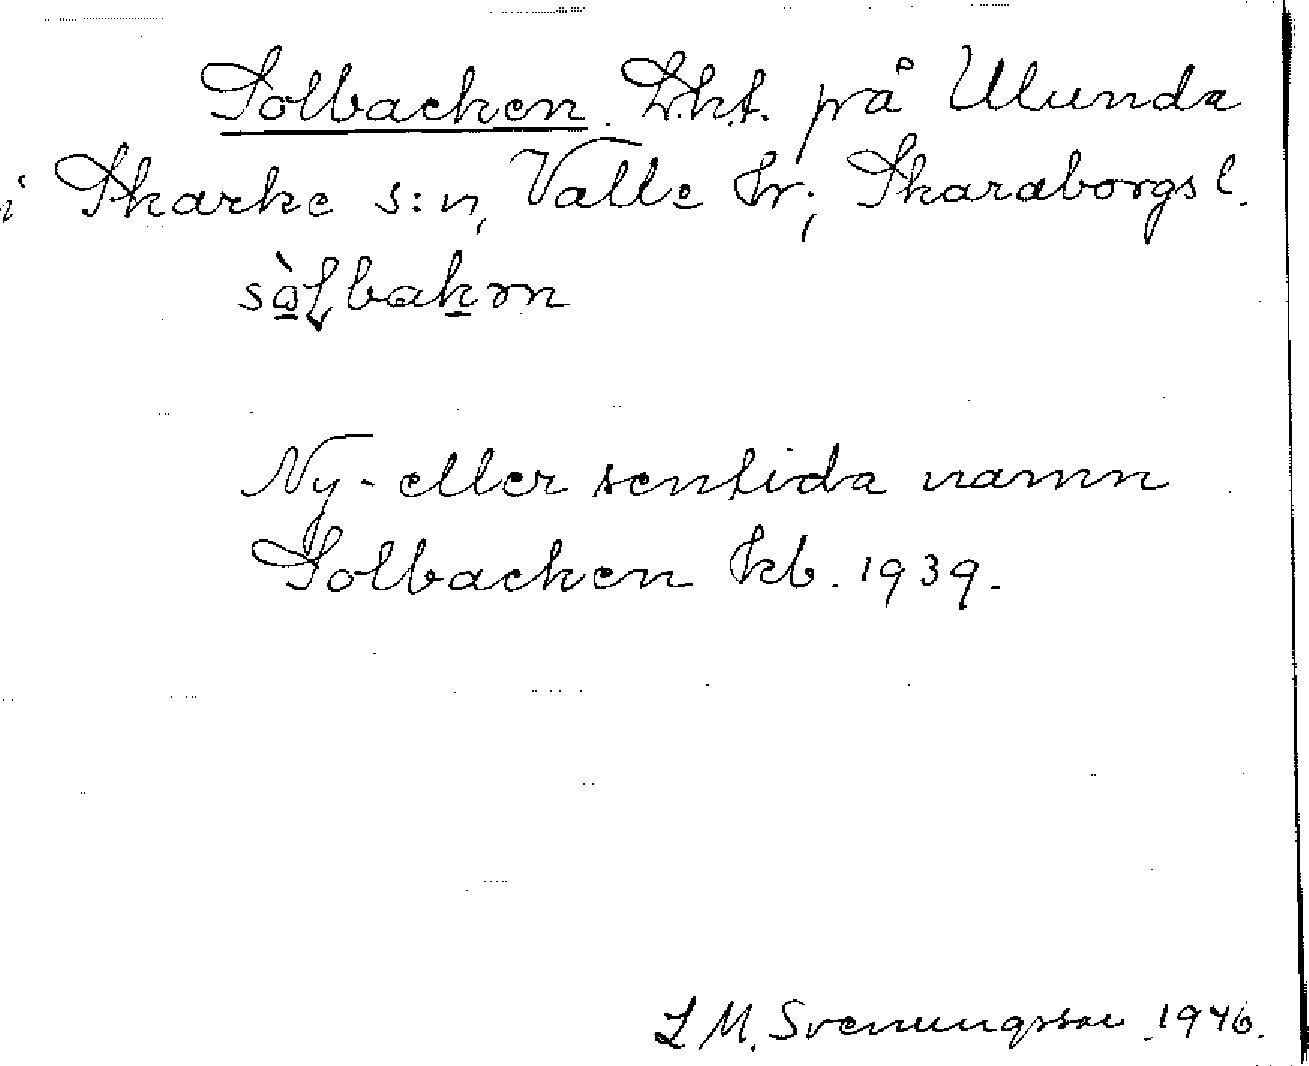 Solbacken. Lht. på Ulunda
i Skarke s:n, Valle hr; Skaraborgs l.
sòlbakən
Ny- eller sentida namn
Solbacken kb. 1939.
L M. Svenungsson 1946.